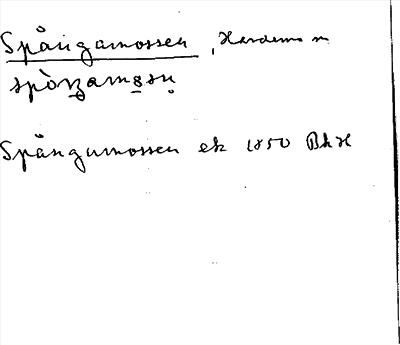 Spångamossen, Hardemo sn
spòŋamo̱sn̥
Spångamossen ek 1850 BhH